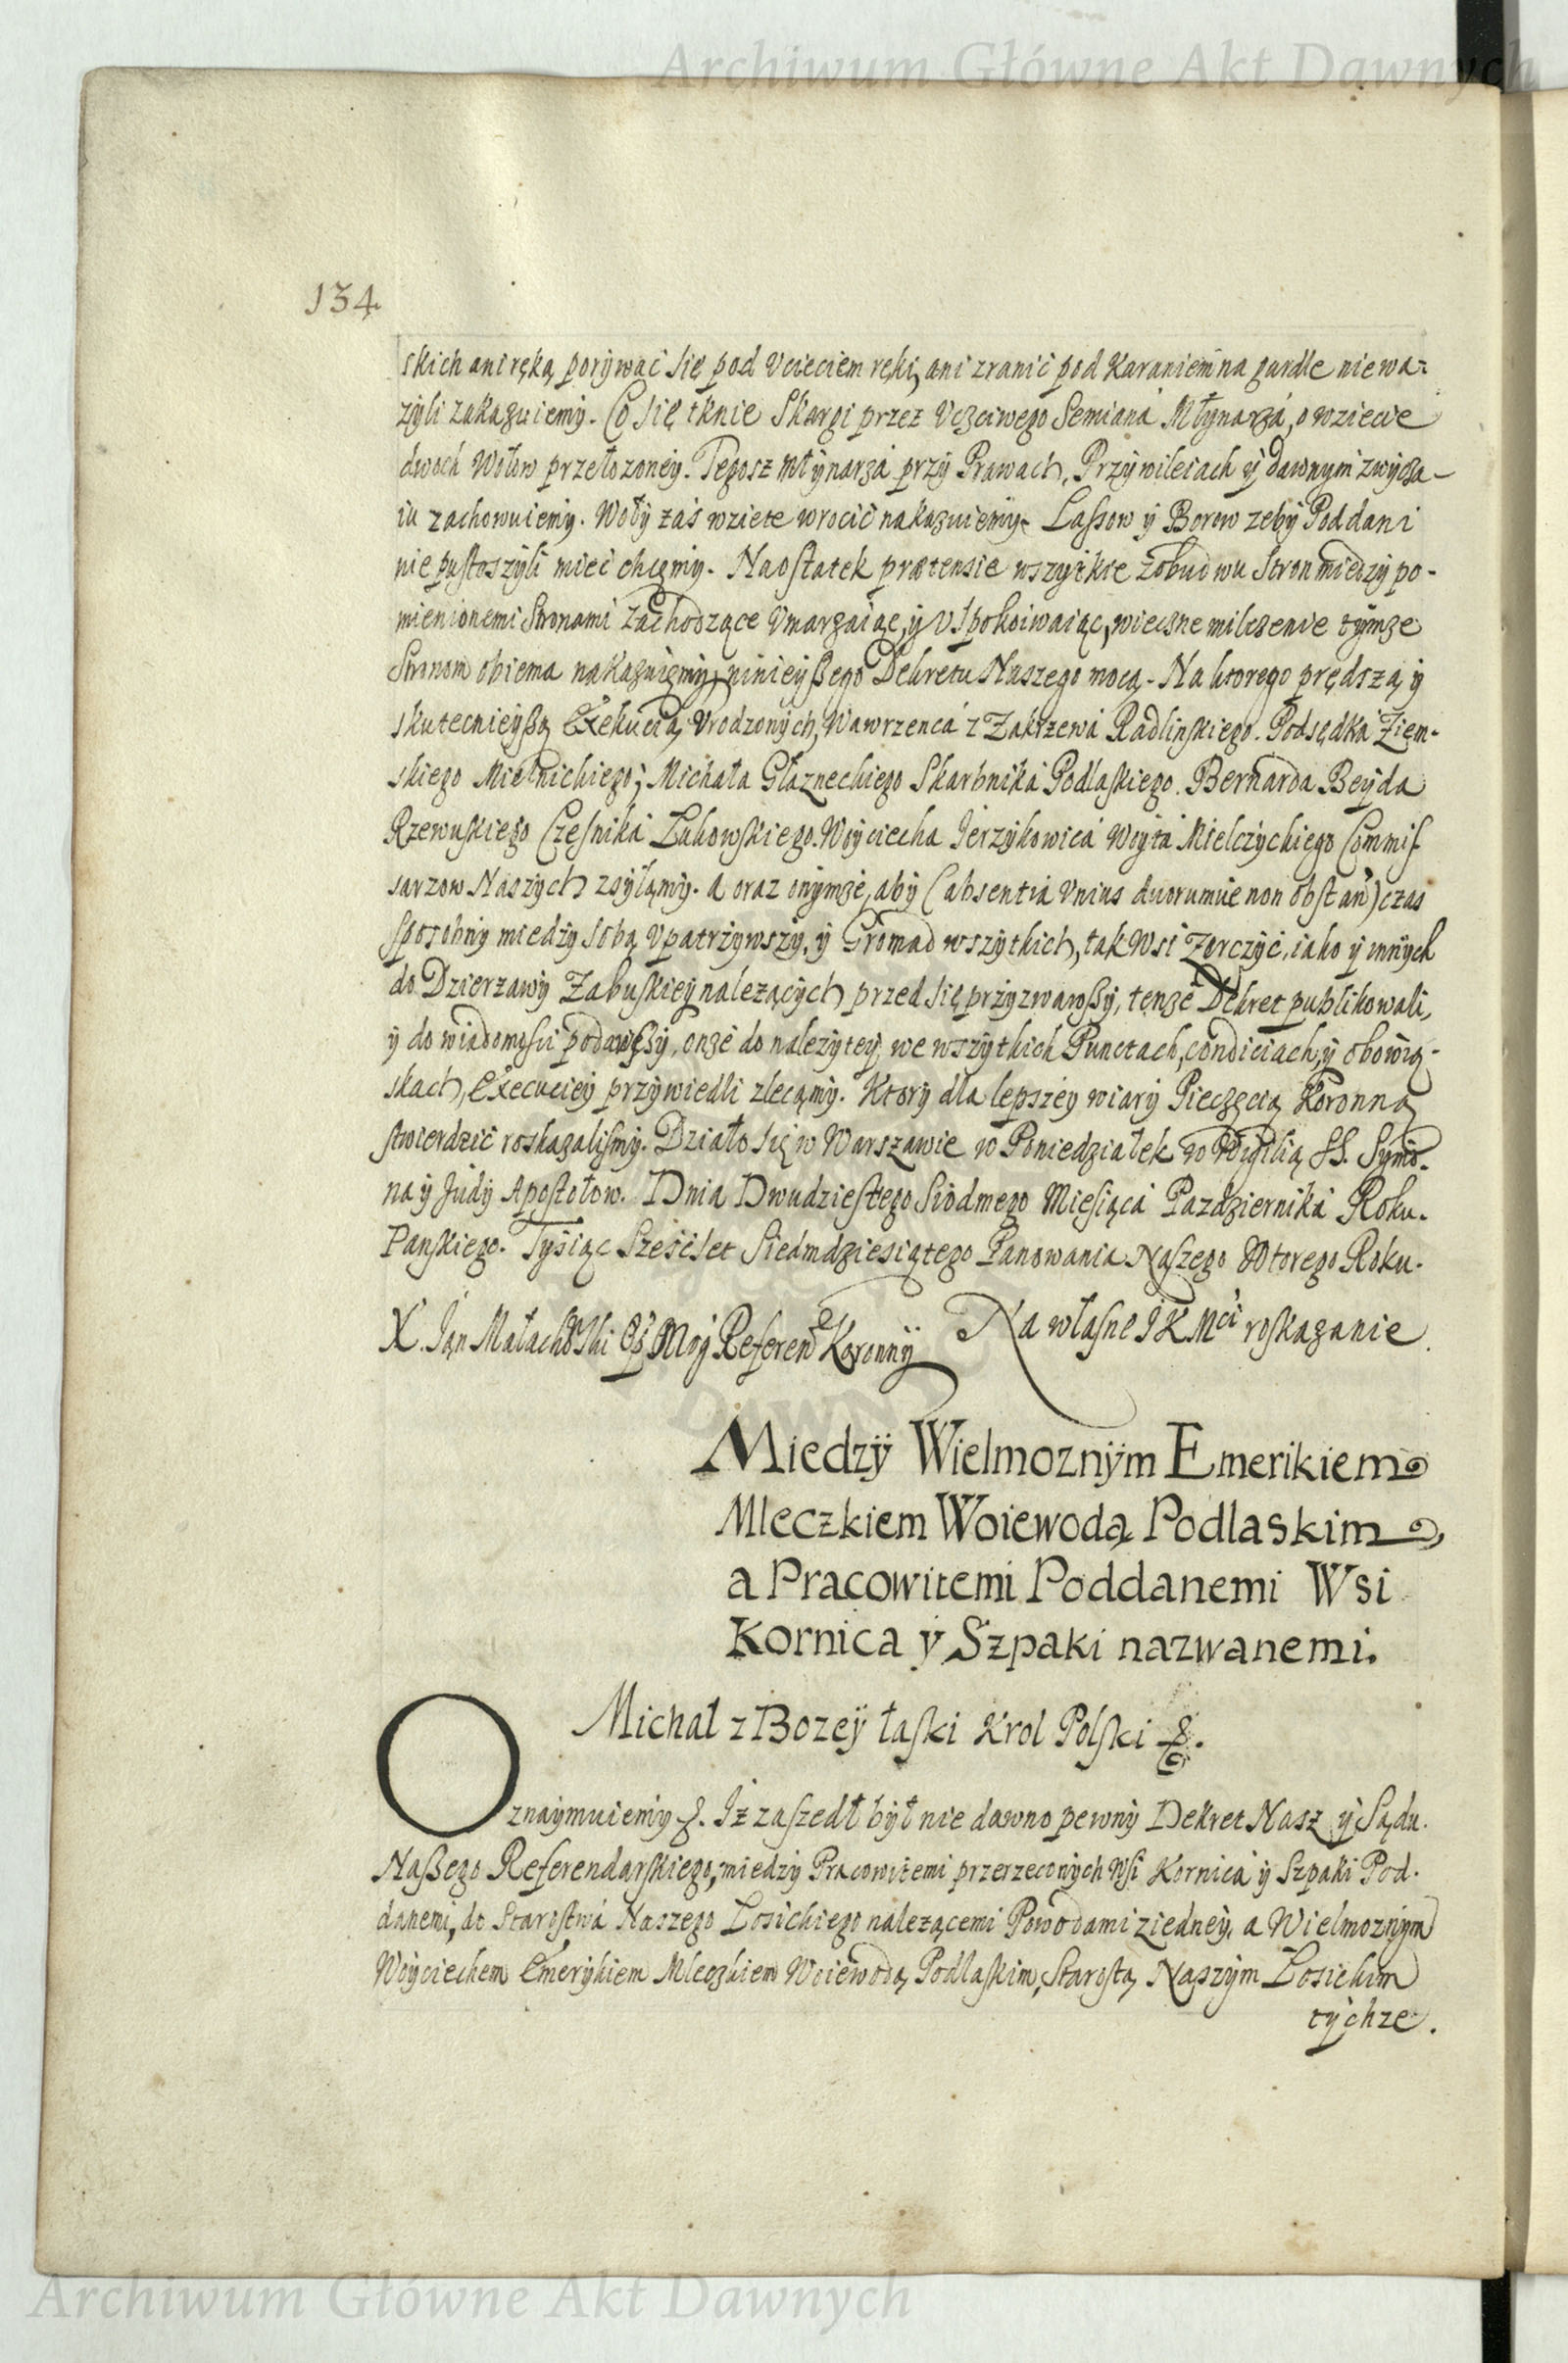 Archiwum Główne Akt Dawnych
134
skich ani ręką porywac się pod Vcieciem ręki, ani zranić pod Karaniem na gardle nie wa-
zyli zakazuiemy. Co się tknie Skargi przez Vczciwego Semiana Młynarza, o wziecie
dwoch Wołow przełozoney. Tegosz młynarza przy Prawach, Przywileiach y dawnym zwycza-
iu zachowuiemy. Woły zaś wziete wrocić nakazuiemy. Lassow y Borow zeby Poddani
nie pustoszyli mieć chcemy. Naostatek prætensie wszytkie z obudwu Stron miedzy po-
mienionemi Stronami zachodzące Vmarzaiąc, y Vspokoiwaiąc, wieczne milczenie tymze
Stronom obiema nakazuięmy, ninieyszego Dekretu Naszego mocą. Na ktorego prędszą y
skutecnieyszą Exekucią, Vrodzonych, Wawrzenca z Zakrzewa Radlinskiego. Podsędka Ziem-
skiego Mielnickiego; Michała Głazneckiego Skarbnika Podlaskiego. Bernarda Beyda
Rzewuskiego Czesnika Łukowskiego. Woyciecha Ierzykowica Woyta Mielczyckiego Commis
sarzow Naszych zsyłamy. a oraz onymze, aby (absentia Vnius duorumue non obstan) czas
sposobny miedzy sobą Vpatrzywszy, y Gromad wszytkich, tak Wsi Zerczyć, iako y innych
do Dzierzawy Zabuskiey nalezących przed się przyzwawszy, tenze Dekret publikowali,
y do wiadomosci podawszy, onze do nalezytey we wszytkich Punctach, condiciach, y obowią-
skach, Execuciey przywiedli zlecamy. Ktory dla lepszey wiary Pieczęcią Koronną
stwierdzić roskazalismy. Działo się w Warszawie w Poniedziałek w Wigilią SS. Symo-
na y Judy Apostołow. Dnia Dwudziestego Siodmego Miesiąca Pazdziernika Roku.
Panskiego. Tysiąc Sześćset Siedmdziesiątego Panowania Naszego Wtorego Roku.
X. Ian Małachowski Referen Koronny Na własne I K Mci roskazanie.
Miedzy Wielmoznym Emerikiem
Mleczkiem Woiewodą Podlaskim
a Pracowitemi Poddanemi Wsi
Kornica y Szpaki nazwanemi.
Michał z Bozey łaski Krol Polski &.
Oznaymuiemy &. Iż zaszedł był nie dawno pewny Dekret Nasz y Sądu.
Naszego Referendarskiego, miedzy Pracowitemi przerzeconych Wsi Kornica y Szpaki Pod-
danemi, do Starostwa Naszego Łosickiego nalezącemi Powodami z iedney, a Wielmoznym
Woyciechem Emerykiem Mleczkiem Woiewodą Podlaskim, Starostą Naszym Łosickim
tychze.
Archiwum Główne Akt Dawnych